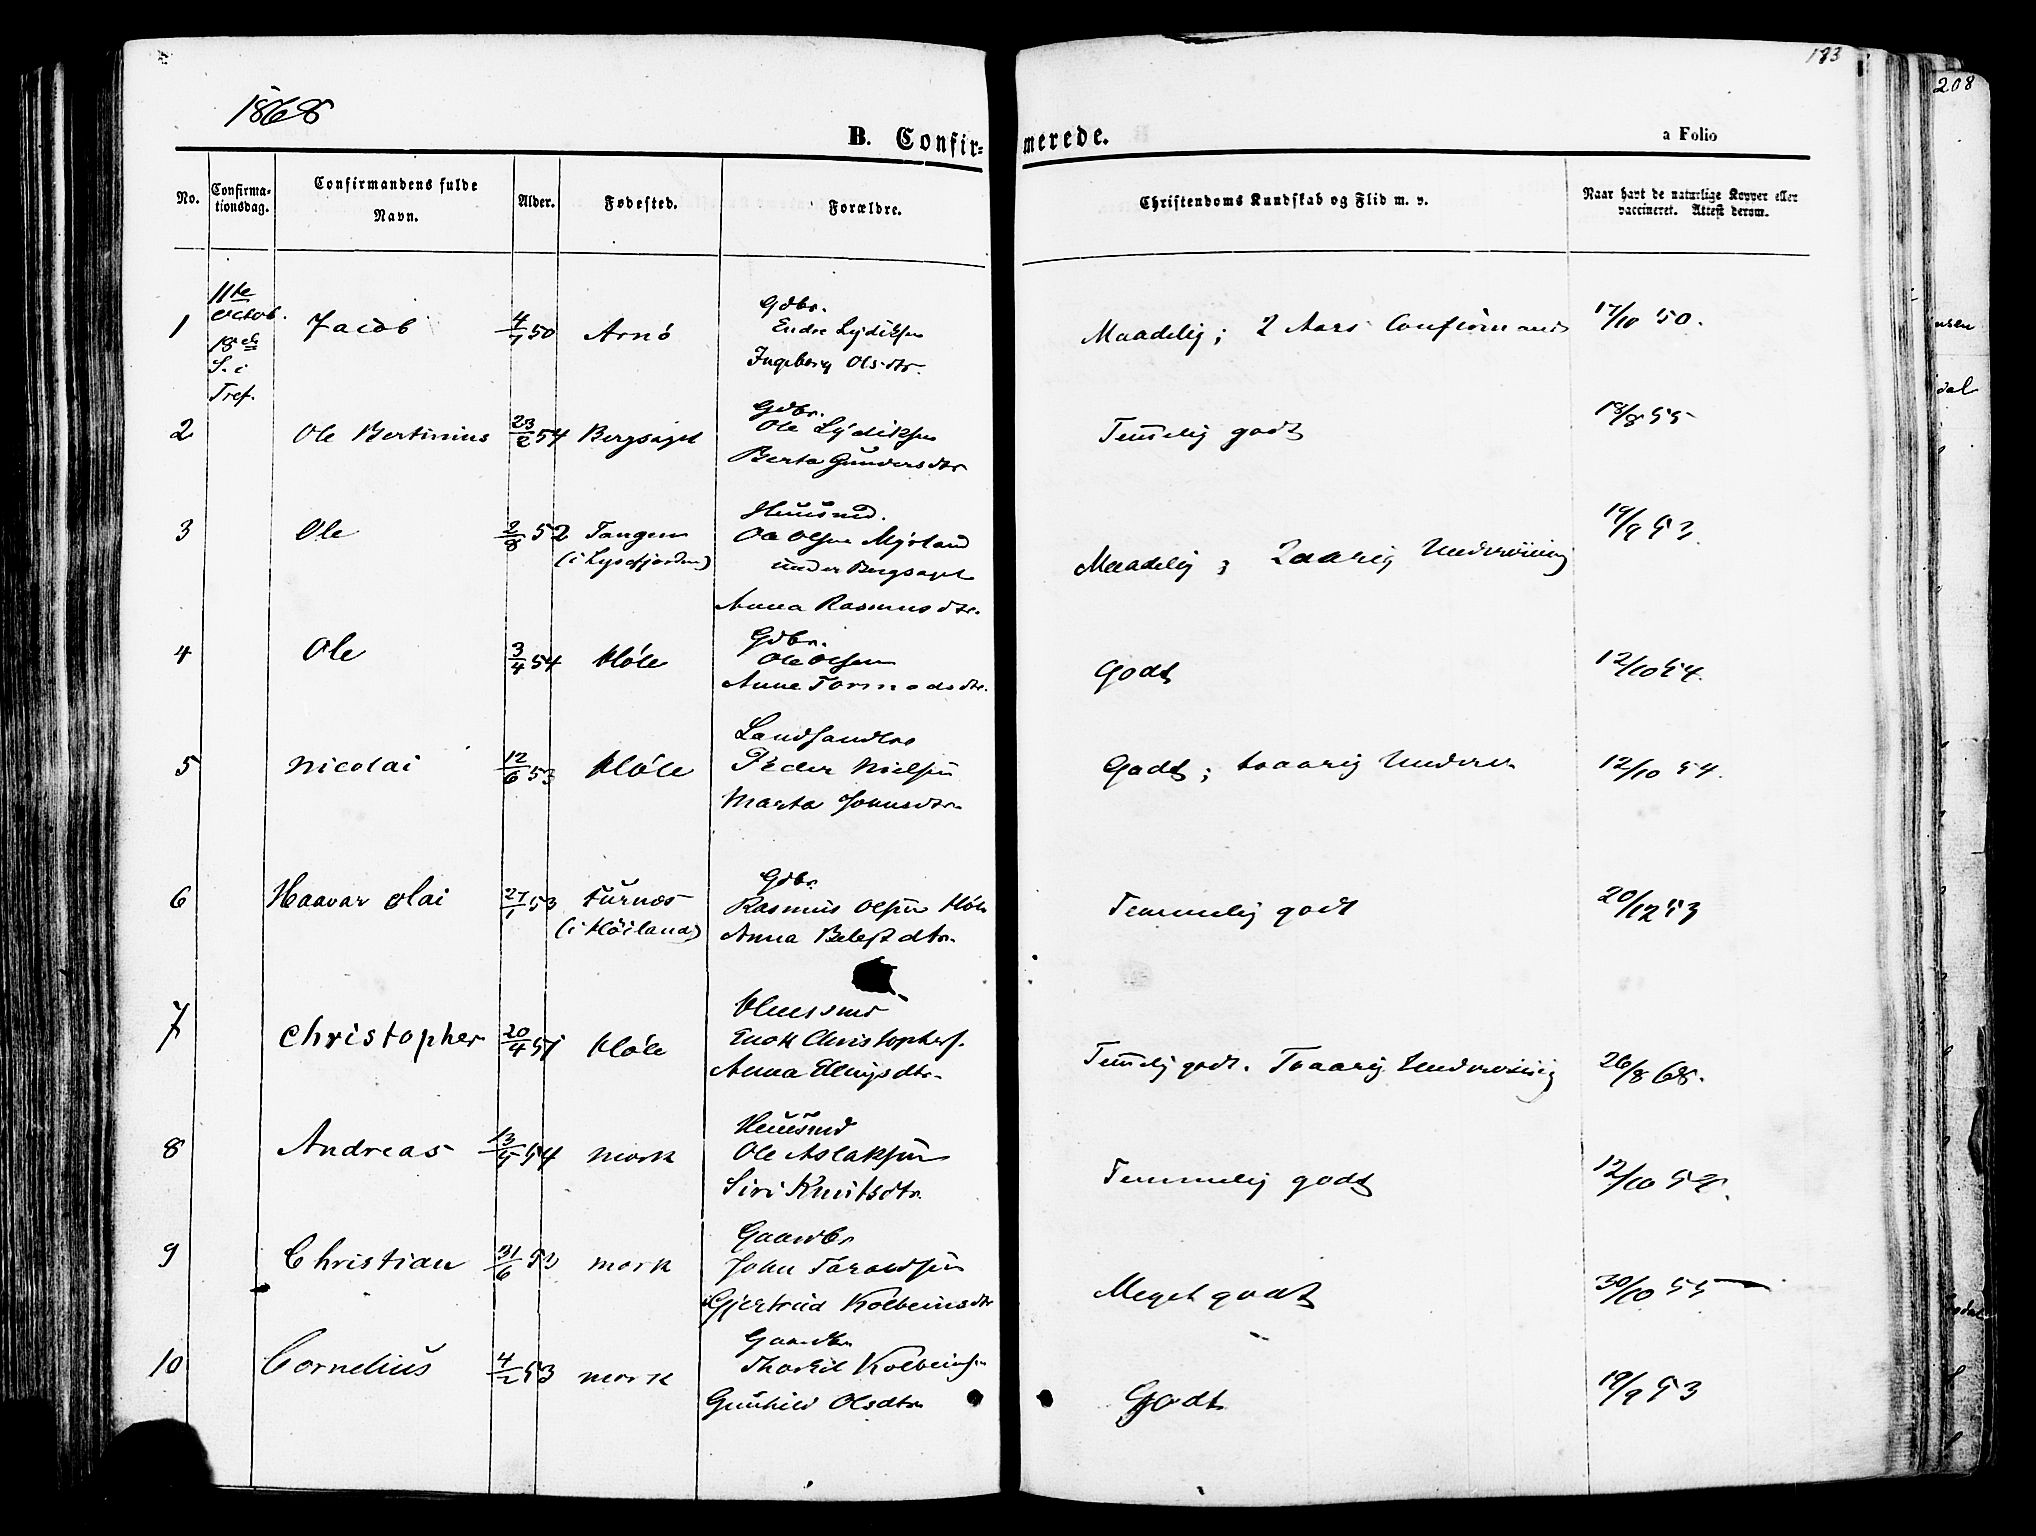 1868
183
208
B. Confir-
merede.
a Folio
No.
Confirma-
tionsdag.
Confirmandens fulde
Navn.
Alder.
Fødested.
Forældre.
Christendoms Kundskab og Flid m. v.
Naar havt de naturlige Kopper eller
vaccineret. Attest derom.
11te
Octob.
18de
S. i
Tref.
1 Jacob 50 Arnø
Gdbr.
Endre Lydiksen
Ingeborg Olsdtr.
Maadelig; 2 Aars Confirmand 17/10 50.
2 Ole Bertinius 23/2 54 Bergsaget
Gdbr.
Ole Lydiksen
Berta Gundersdtr
Temelig godt 18/8 55
3 Ole 2/8 52 Tangen
(i Lysefjorden)
Huusmd.
Ole Olsen Myrland
under Bergsaget
Anna Rasmusdtr.
Maadelig; 2aarig Underviisning 19/9 53
4 Ole 3/4 54 Høle
Gdbr.
Ole Olsen
Anne Tormodsdtr.
Godt 12/10 54.
5 Nicolai 12/6 53 Høle
Landhandler
Peder Nielsen
Marta Johnsdtr
Godt; toaarig Underv. 12/10 54.
6 Haavar Olai 27/1 53 Furnæs
(i Höiland)
Gdbr
Rasmus Olsen Høle
Anna dtr.
Temmelig godt 20/12 53
7 Christopher 20/4 51 Høle
Huusmd
Enok Christophers.
Anna Ellingsdtr.
Temelig godt. Toaarig Underviisnig 26/8 68.
8 Andreas 13/5 54 Mork
Huusmd
Ole Aslaksen
Siri Knutsdtr.
Temmelig godt 12/10 54.
9 Christian 31/6 Mork
Gaardbr
John Tarandsen
Gjertrud Kolbeinsdtr
Meget godt 30/10 55
10 Cornelius 4/2 53 Mork
Gaardbr
Thorkil Kolbeinsen
Gunhild Olsdtr
Godt 19/9 53